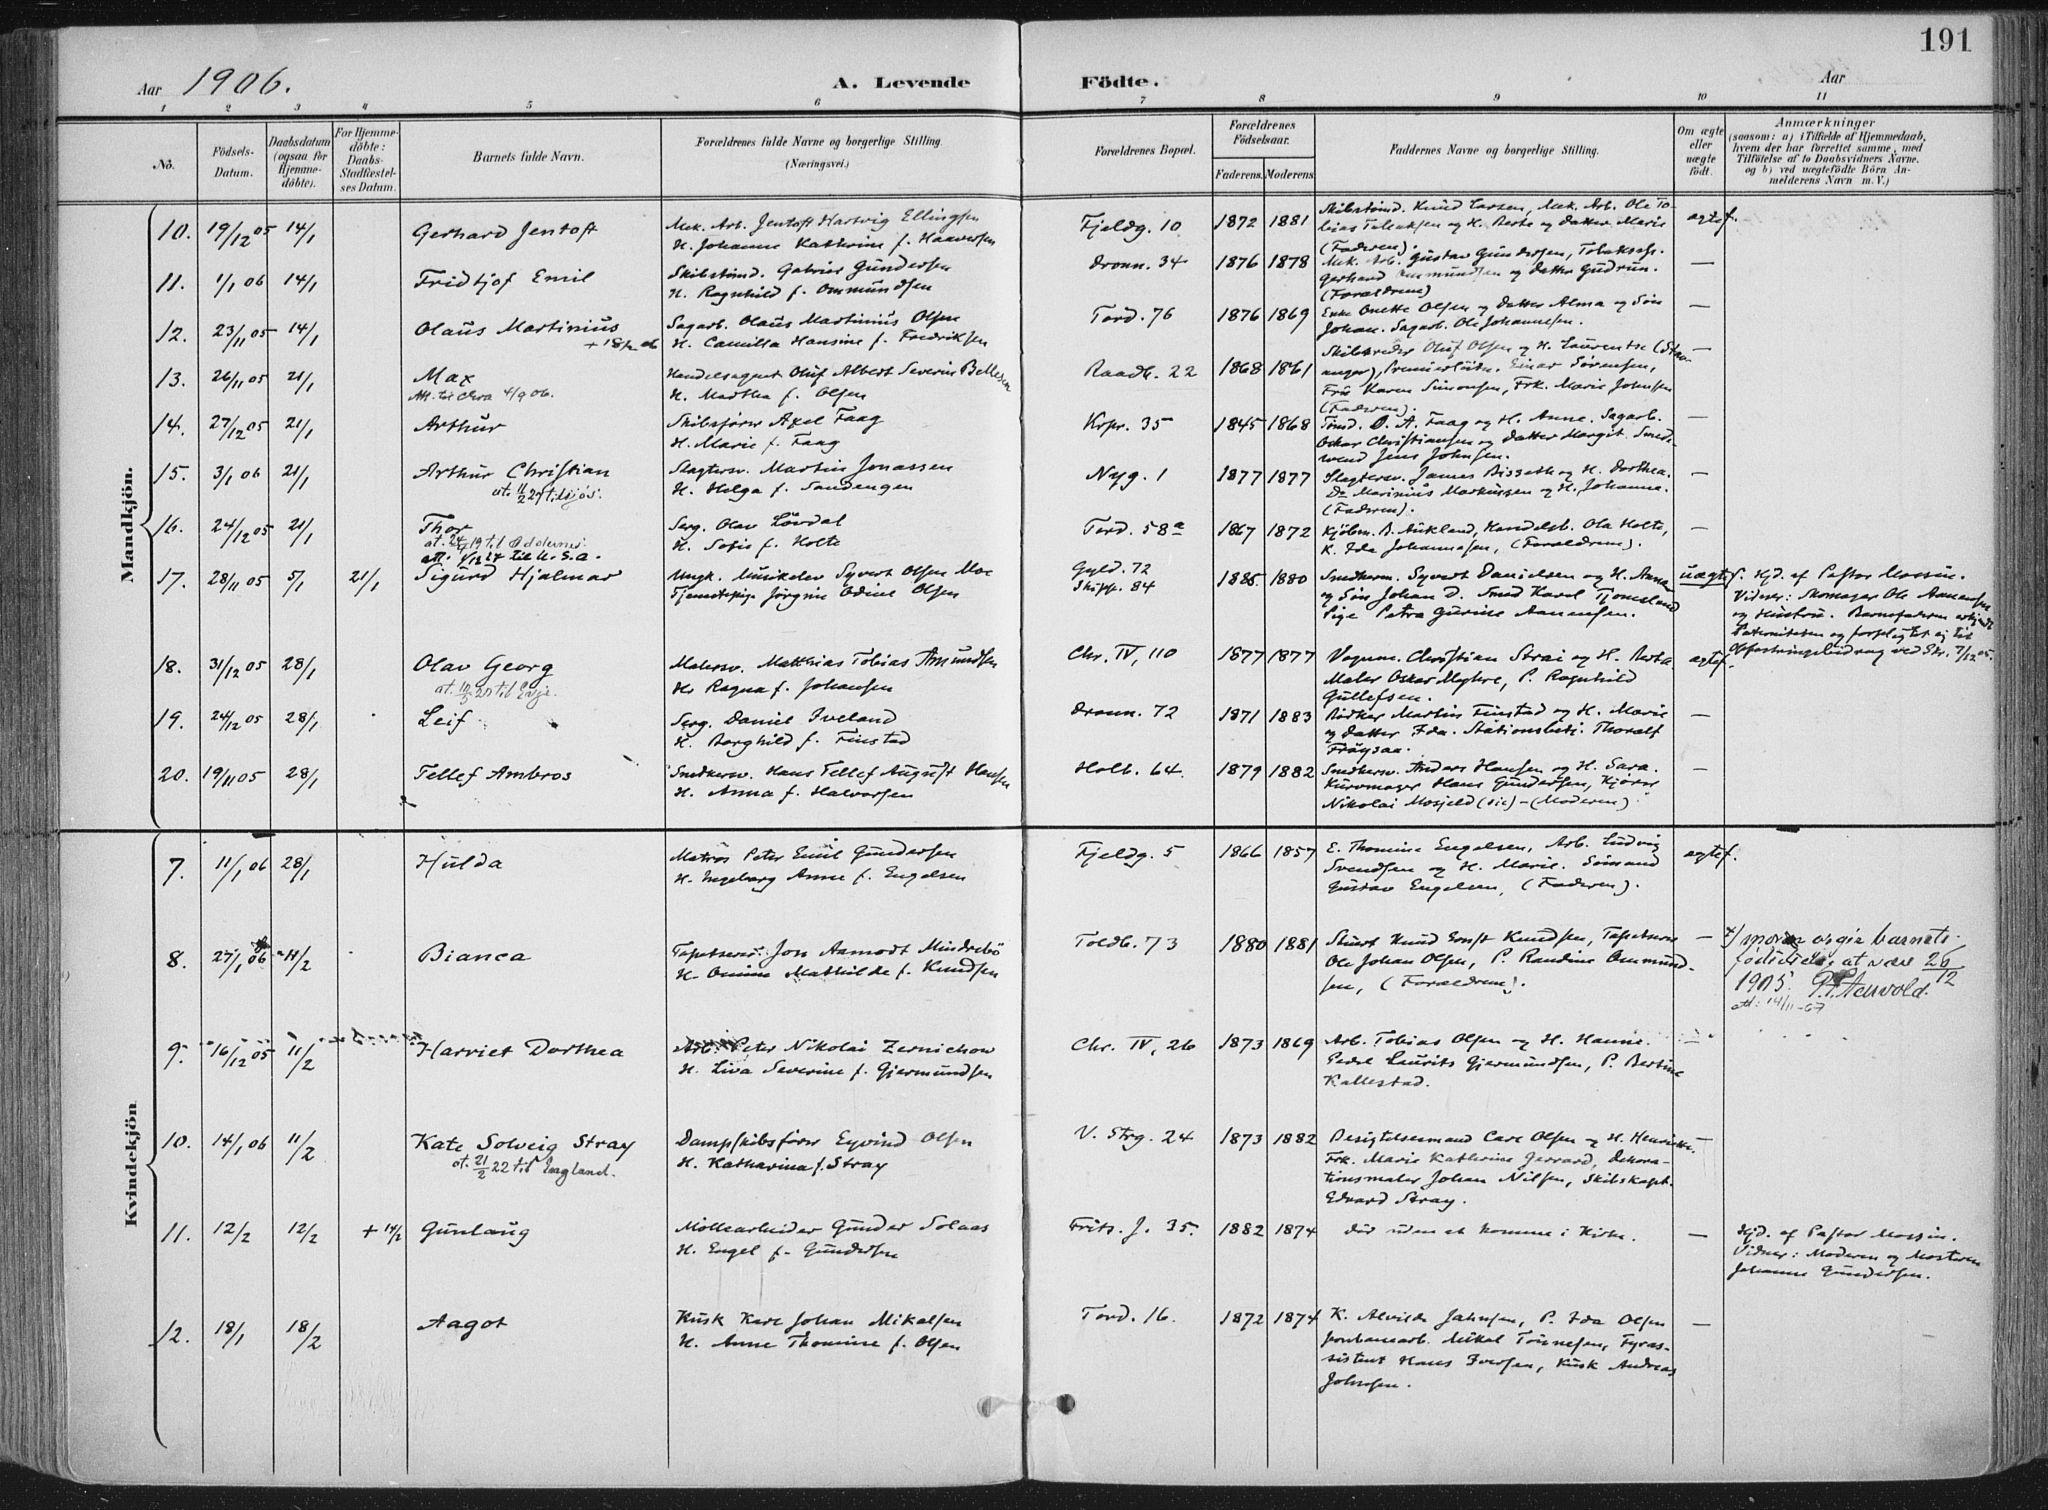 191
Aar 1906. A. Levende Födte. Aar
1 2 3 4 5 6 7 8 9 10 11
No. Födsels-Datum. Daabsdatum (ogsaa for Hjemmedöbte). For Hjemmedöbte: Daabs-Stadfæstelses Datum. Barnets fulde Navn. Forældrenes fulde Navne og borgerlige Stilling. (Næringsvei.) Forældrenes Bopæl. Forældrenes Födselsaar. Faderens. Moderens. Faddernes Navne og borgerlige Stilling. Om ægte eller uægte födt. Anmærkninger (saasom: a) i Tilfælde af Hjemmedaab, hvem der har forrettet samme, med Tilföielse af to Daabsvidners Navne, og b) ved uægtefödte Börn Anmelderens Navn m. V.)
Mandkjön.
10. 19/12 05 14/1 Gerhard Jentoft Mek. Arb. Jentoft Hartvig Ellingsen Fjeldg. 10 1872 1881 Skibstømd. Knud Larsen, Mek. Arb. Ole To-
H. Johanne Kathrine f. Haaversen og H. Berte og Datter Marie ægtef.
(Faderen).
11. 1/1 06 14/1 Fridtjof Emil Skibstømd. Gabriel Gundersen Dronn. 34 1876 1878 Mek. Arb. Gustav Gundersen,
H. Ragnhild f. Ommundsen Gerhard Ommundsen og Datter Gudrun. —
(Forældrene)
12. 23/11 05 14/1 Olaus Martinius Sagarb. Olaus Martinius Olsen Tord. 76 1876 1869 Enke Onette Olsen og Datter Alma og Søn
+ 18/2 06 H. Camilla Hansine f. Fredriksen Johan. Sagarb. Ole Johannesen. —
13. 26/11 05 21/1 Max Handelsagent Oluf Albert Severin Bellesen Raadh. 22 1868 1861 Skibsreder Oluf Olsen og H. Laurentse (Stav-
Att. til Chra 4/9 06. H. Martha f. Olsen anger), Premierløitn. Einar Sørensen, —
Frk Karen Simonsen, Frk. Marie Johnsen
(Faderen).
14. 27/12 05 21/1 Arthur Skibsfører Axel Faag Krpr. 35 1845 1868 Tømd. O. A. Faag og H. Anne. Sagarb.
H. Marie f. Faag Oskar Christiansen og Datter Margit. Smed- —
svend Jens Johnsen.
15. 3/1 06 21/1 Arthur Christian Slagtersv. Martin Jonassen Nyg. 1 1877 1877 Slagtersv. James Bisseth og H. Dorthea.
H. Helga f. Sandengen Do Marinius Markussen og H. Johanna. —
(Faderen).
16. 24/12 05 21/1 Thor Serg. Olav Løvdal Tord. 58a 1867 1872 Kjøbm. B. Aukland, Handelsb. Ola Holte,
H. Sofie f. Holte K. Ida Johannesen, (Forældrene). —
til U.S.A.
17. 28/11 05 5/1 21/1 Sigurd Hjalmar Ungk. Musikelev Syvert Olsen Moe Gyld. 72 1885 1880 Snedkerm. Syvert Danielsen og H. Anna uægtef. Hjd. af Pastor Mossin.
Tjenestepige Jørgine Odine Olsen Skipp. 84 og Søn Johan D. Smed Karl Tjomsland Vidner: Skomager Ole Aanensen
Pige Petra Gurine Aanensen. og Hustru. Barnefaderen
Paterniteten og forpligtet sig til
Opfostringsbidrag ved Skr. 7/12 05.
18. 31/12 05 28/1 Olav Georg Malersv. Matthias Tobias Amundsen Chr. IV, 110 1877 1877 Vognm. Christian Strai og H. Berta ægtef.
Hs Ragna f. Johansen Maler Oskar Myhre, P. Ragnhild
Gullefsen.
19. 24/12 05 28/1 Leif Serg. Daniel Iveland Dronn. 72 1871 1883 Bødker Martin Finstad og H. Marie
H. Borghild f. Finstad og Datter Ida. Stationsbetj. Thoralf —
Frøysaa.
20. 19/11 05 28/1 Tellef Ambros Snedkersv. Hans Tellef August Hansen Holb. 64. 1879 1882 Snedkersv. Anders Hansen og H. Sara.
H. Anna f. Halvorsen Kurvmager Hans Gundersen, Kjører —
Nikolai Mosjeld (sic) - (Moderen)
Kvindekjön
7. 11/1 06 28/1 Hulda Matros Peter Emil Gundersen Fjeldg. 5 1866 1857 E. Thomine Engelsen, Arb. Ludvig ægtef.
H. Ingeborg Anne f. Engelsen Svendsen og H. Marie. Sømand
Gustav Engelsen, (Faderen).
8. 27/1 06 11/2 Bianca Tapetserer Jon Aamodt Mindrebö Toldb. 73 1880 1881 Stuert Knud Ernst Knudsen, Tapetserer —
H. Omine Mathilde f. Knudsen Ole Johan Olsen, P. Randine Ommund-
sen, (Forældrene).
moren opgir barnets
at være 26/12
1905.
att: 14/11-67
9. 16/12 05 11/2 Harriet Dorthea Arb. Peter Nikolai Zernichow Chr. IV, 26 1873 1869 Arb. Tobias Olsen og H. Hanne. —
H. Liva Severine f. Gjermundsen Laurits Gjermundsen, P. Bertine
Kallestad.
10. 14/1 06 11/2 Kate Solveig Stray Dampskibsfører Eyvind Olsen V. Strg. 24 1873 1882 Besigtelsesmand Carl Olsen og H. Henriette. —
ut. 21/2 22 til England. H. Katharina f. Stray Frk. Marie Kathrine Gerrard, Dekora-
tionsmaler Johan Nilsen, Skibskapt.
Edvard Stray.
11. 12/2 12/2 + 14/2 Gunlaug Møllearbeider Gunder Solaas Fritz. J. 35. 1882 1874 Dør uden at komme i Kirke. — Hjd. af Pastor Mossin.
H. Engel f. Gundersen Vidner: Moderen og Mosteren
Johanne Gundersen.
12. 18/1 18/2 Aagot Kusk Karl Johan Mikalsen Tord. 16. 1872 1874 K. Alvilde Jahnsen, P. Ida Olsen
H. Anne Thomine f. Olsen Mikal Tønnesen, Fyras- —
sistent Hans Iversen, Kusk Andreas
Johnsen.